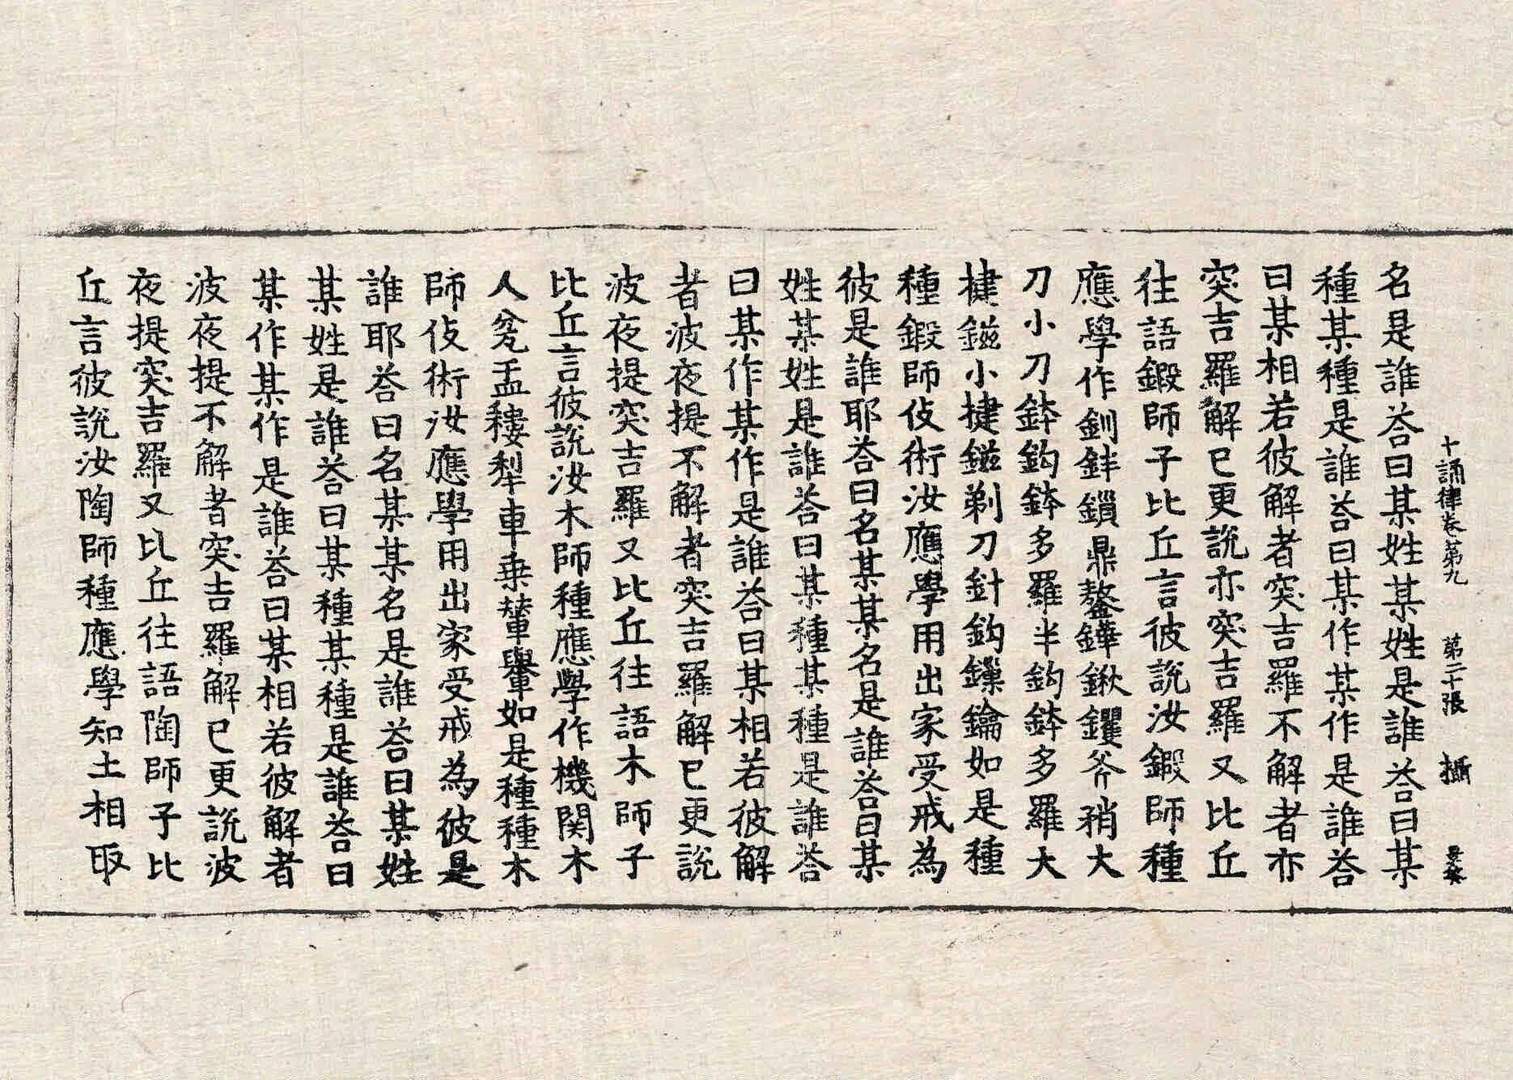 十誦律卷第九 第二十張 攝
名是誰荅曰某姓某姓是誰荅曰某
種某種是誰荅曰某作某作是誰荅
曰某相若彼解者突吉羅不解者亦
突吉羅解已更說亦突吉羅又比丘
往語鍛師子比丘言彼說汝鍛師種
應學作釧釪鎖鼎鏊鏵鍬钁斧矟大
刀小刀鉢鈎鉢多羅半鈎鉢多羅大
揵鎡小揵鎡剃刀針鈎鏁鑰如是種
種鍛師伎術汝應學用出家受戒為
彼是誰耶荅曰名某某名是誰荅曰某
姓某姓是誰荅曰某種某種是誰荅
曰某作某作是誰荅曰某相若彼解
者波夜提不解者突吉羅解已更說
波夜提突吉羅又比丘往語木師子
比丘言彼說汝木師種應學作機関木
人㼜盂耬犁車乗輦轝如是種種木
師伎術汝應學用出家受戒為彼是
誰耶荅曰名某某名是誰荅曰某姓
某姓是誰荅曰某種某種是誰荅曰
某作某作是誰荅曰某相若彼解者
波夜提不解者突吉羅解已更說波
夜提突吉羅又比丘往語陶師子比
丘言彼說汝陶師種應學知土相取